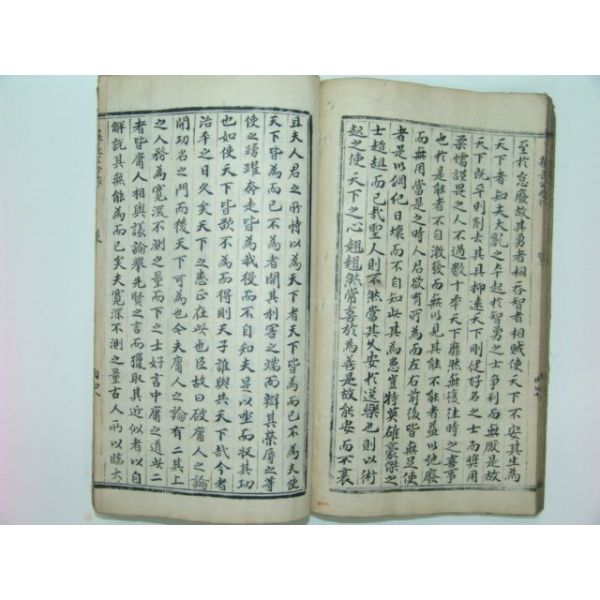 至於怠廢故其勇者相吞智者相賊使天下不安其生為
天下者知夫大亂之本起於智勇之士爭利而無厭是故
天下既平則削去其具抑遠天下剛健好名之士而獎用
柔懦謹畏之人不過數十年天下靡然無復往時之喜事
也於是能者不自激發而無以見其能不能者益以弛廢
而無用當是之時人君欲有所為而左右前後皆無足使
者是以綱紀日壞而不自知此其為患豈特英雄豪傑之
士趑趄而已哉聖人則不然當其久安於逸樂也則以術
起之使天下之心翹翹然常喜於為善是故能安而不衰
且夫人君之所恃以為天下者天下皆為而己不為夫使
天下皆為而己不為者開其利害之端而辯其榮辱之等
使之踴躍奔走皆為我役而不自知夫是以坐而收其功
也如使天下皆欲不為而得則天子誰與共天下哉今者
治平之日久矣天下之患正在此也臣故曰破庸人之論
開功名之門而後天下可為也今夫庸人之論有二其上
之人務為寬深不測之量而下之士好言中庸之道此二
者皆庸人相與議論舉先賢之言而獵取其近似者以自
解說其無能為而已矣夫寬深不測之量古人所以臨大